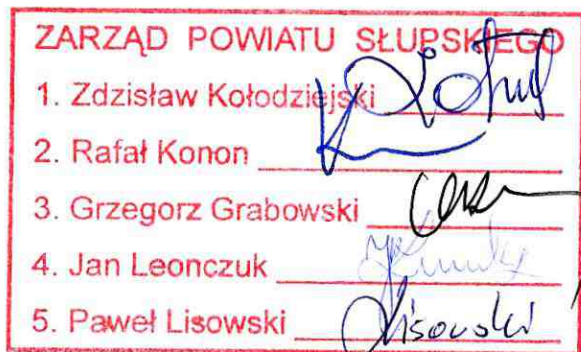 ZARZĄD POWIATU SŁUPSKIEGO
1. Zdzisław Kołodziejski
2. Rafał Konon
3. Grzegorz Grabowski
4. Jan Leonczuk
5. Paweł Lisowski Lisowski